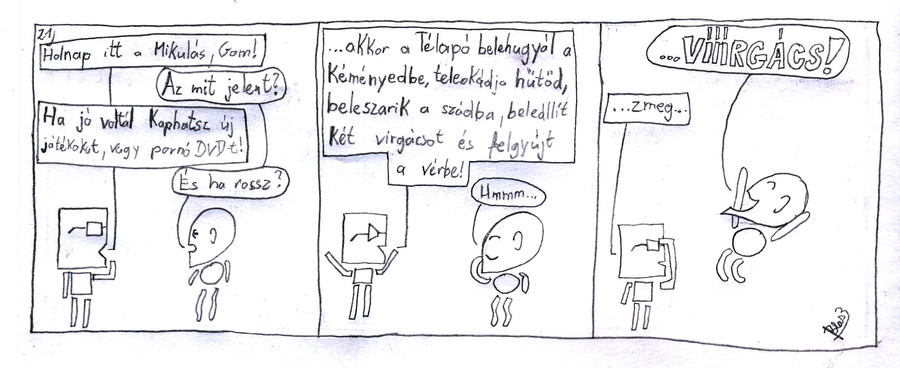 21,
Holnap itt a Mikulás, Gom!
Az mit jelent?
Ha jó voltál kaphatsz új
játékokat, vagy pornó DVD-t!
És ha rossz?
...akkor a Télapó belehugyál a
kéményedbe, teleokádja hűtőd,
beleszarik a szádba, beleállít
két virgácsot és felgyújt
a vérbe!
Hmmm...
...VIIIRGÁCS!
...zmeg...